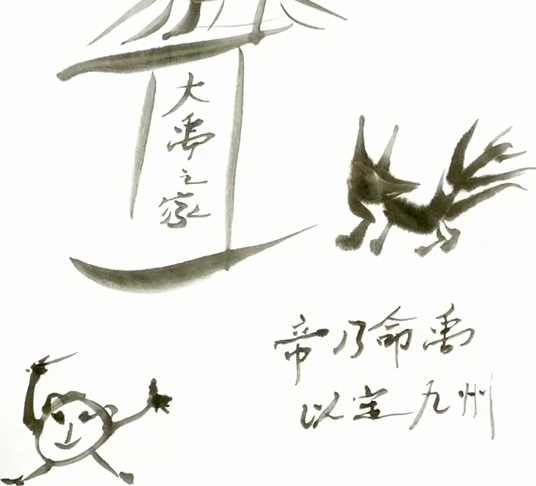 大禹之家
帝乃命禹
以定九州